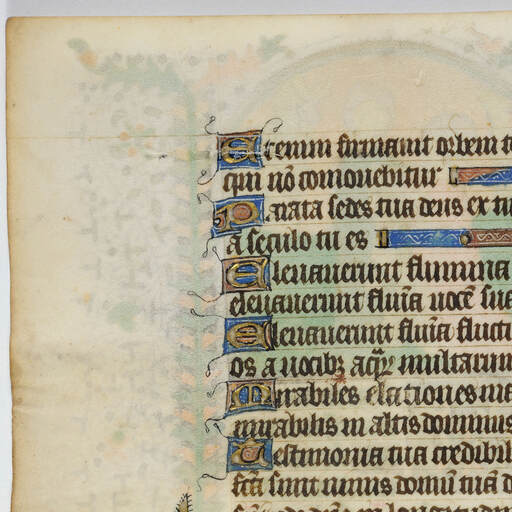 Etenim firmauit orbem t
qui nõ comouebitur
Parata sedes tua deus ex tu
a seculo tu es
Eleuauerunt flumina
eleuauerunt fluīa uocē sua
Eleuauerunt fluīa fluct
os a uocibꝫ aqꝝ multarum
Mirabiles elationes ma
mirabilis in altis dominus
Testimonia tua credibil
fc̃a sunt nimis domũ tuã d